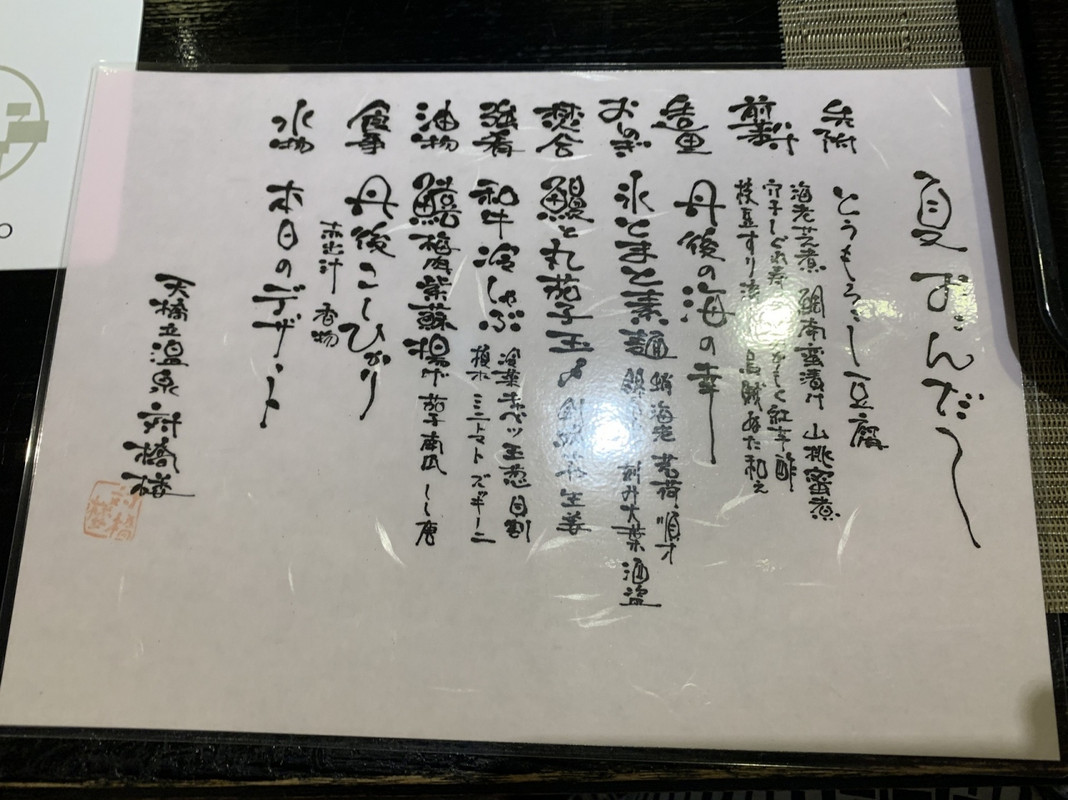 夏ずんだ〜
先附 とうもろこし豆腐
前菜 海老芝煮 鯛南蛮漬け 山桃蜜煮
穴子しぐれ寿司 紅芋酢
枝豆すり流し 烏賊ぬた和え
造里 丹後の海の幸
おしのぎ 氷とまと素麺 蛸 海老 茗荷 順才
刻み大葉 酒盗
焚合 鰻と丸茄子玉〆 生姜
強肴 和牛冷しゃぶ 温菜キャベツ 玉葱 貝割
植木 ミニトマト ズッキーニ
油物 鱚梅肉紫蘇揚げ 茄子 南瓜 しし唐
食事 丹後こしひかり
赤出汁 香物
水物 本日のデザート
天橋立温泉 対橋楼